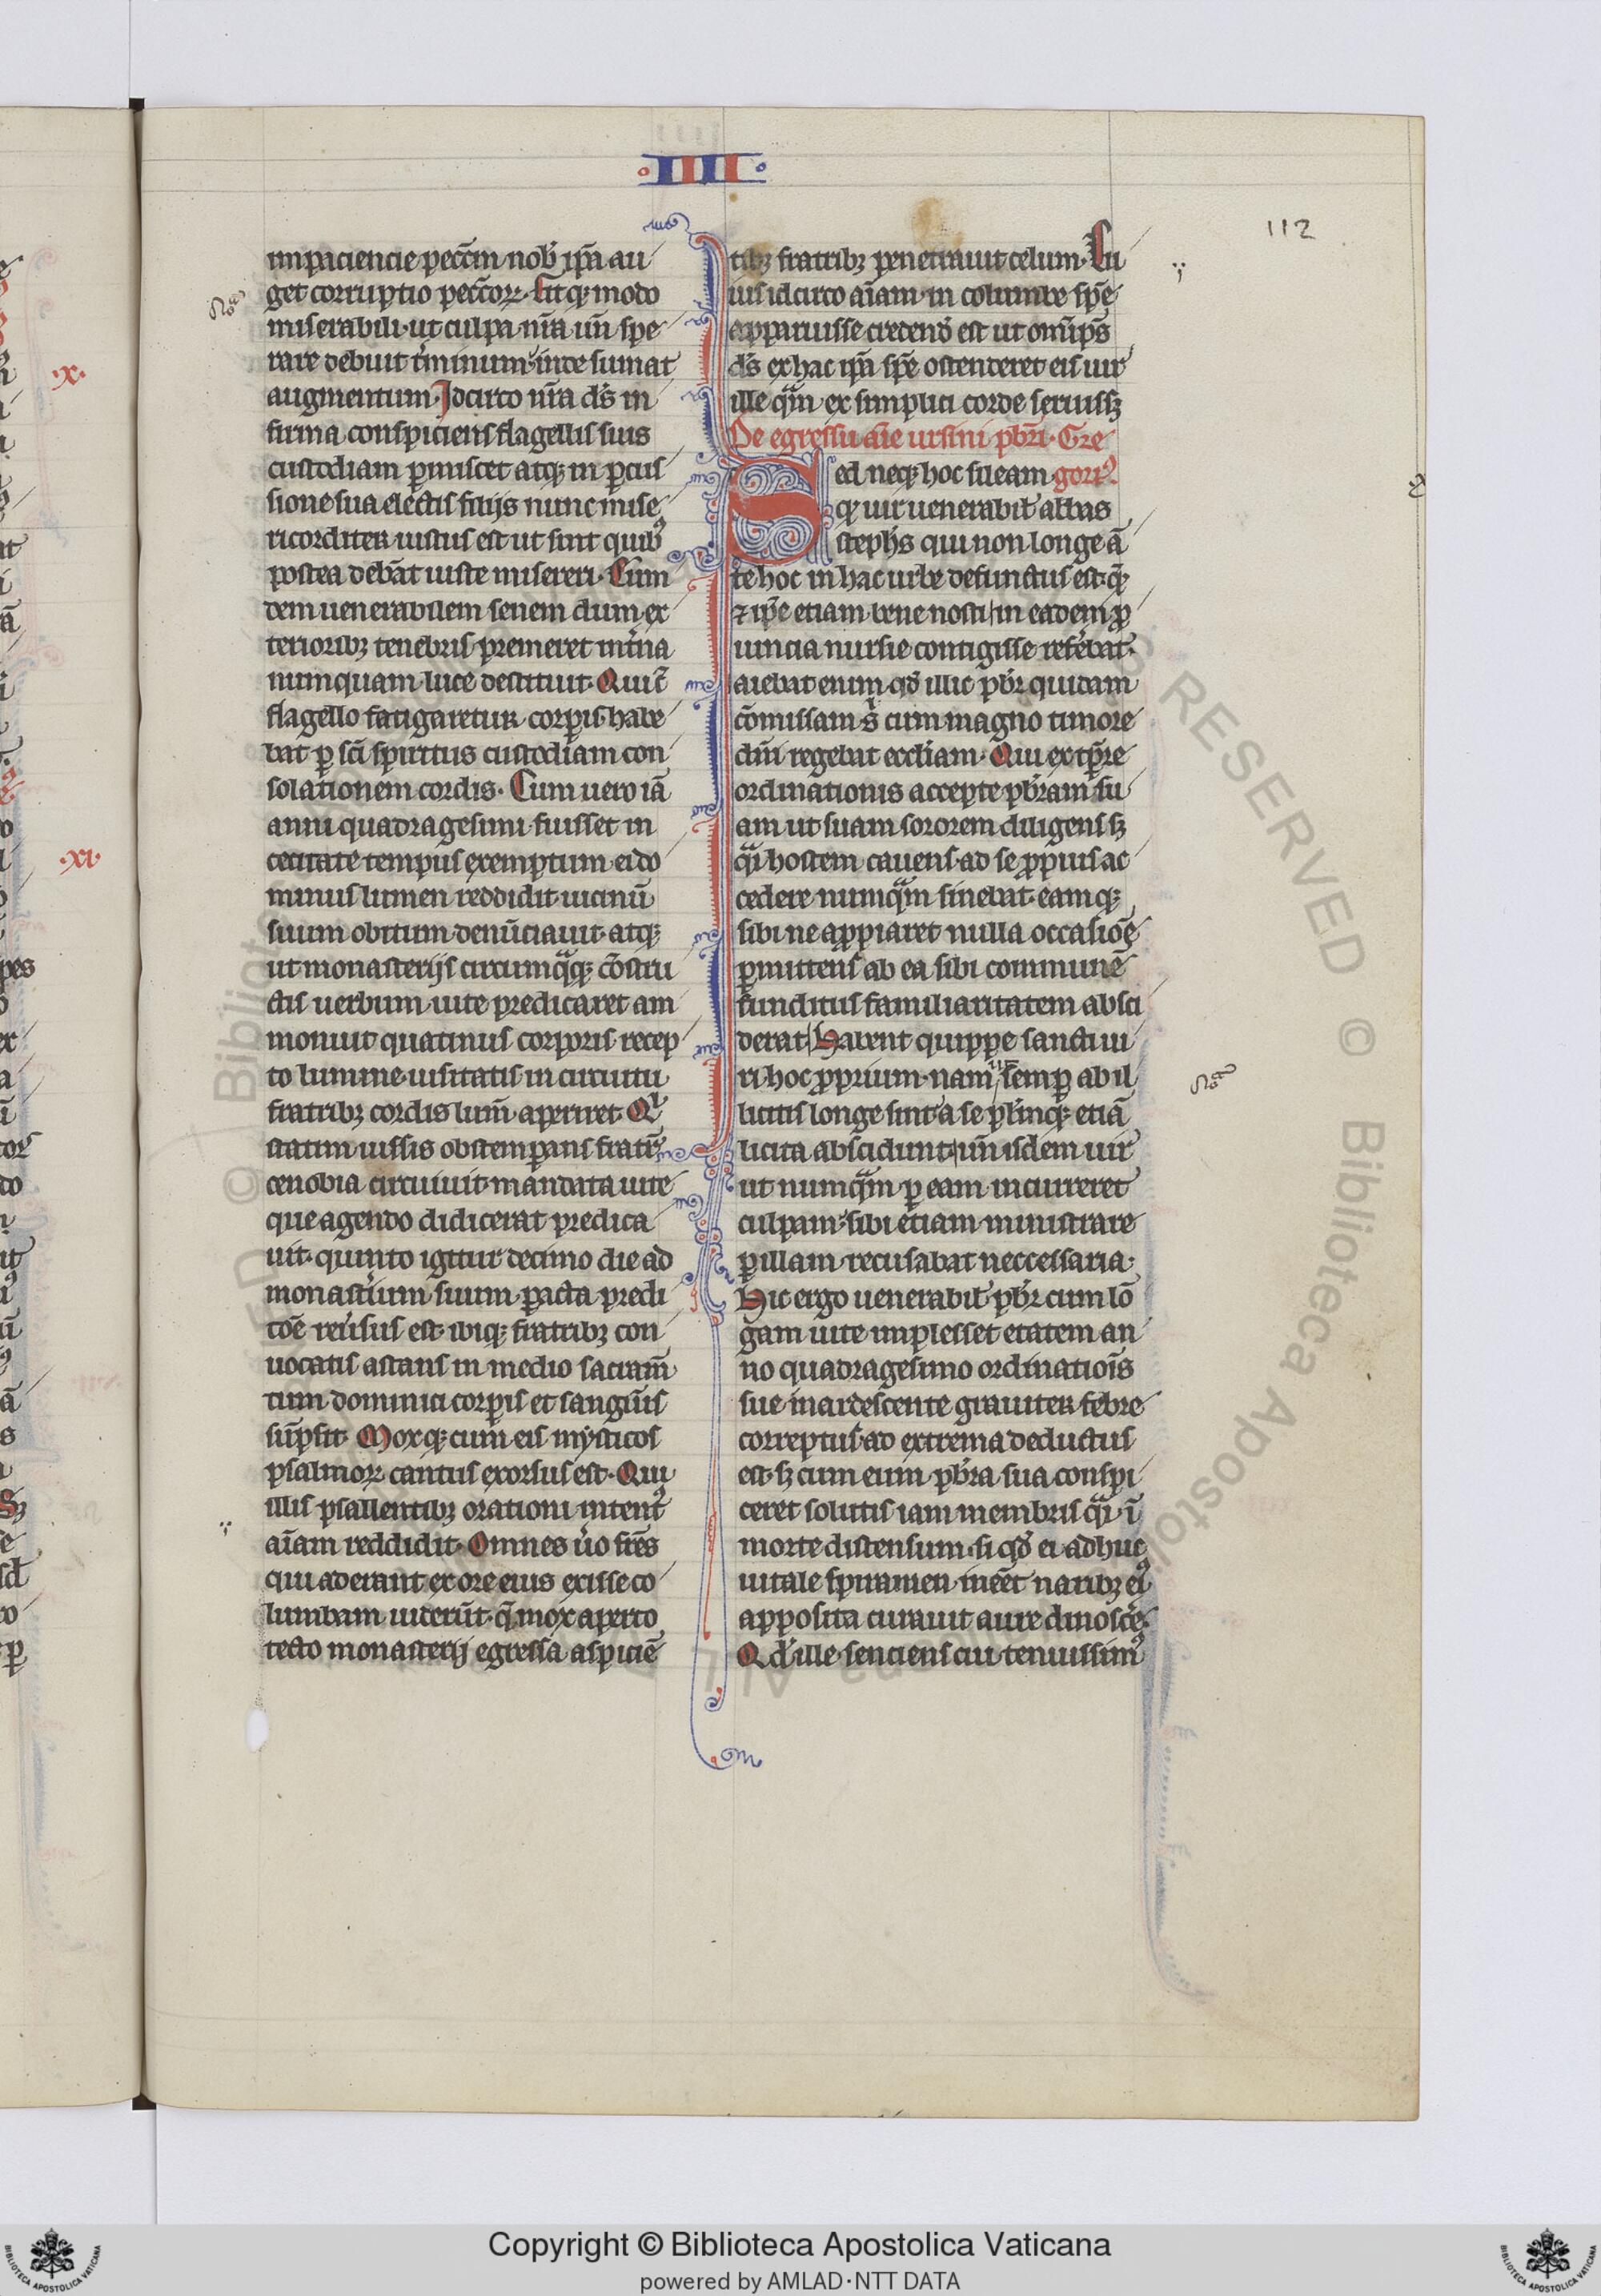 IIII
112
impaciencie pecc̄m nob̓ ip̄a au
get corruptio pecc̄oꝝ. fitqꝫ modo
miserabili ut culpa nr̄a un̄ spe
rare debuit t̓minum inde sumat
augmentum. Idcirco nr̄a ds̄ in
firma conspiciens flagellis suis
custodiam ꝑmiscet atqꝫ in ꝑcus
sione sua electis filijs nunc mise
ricorditer iustus est ut sint quibꝰ
postea debeāt iuste misereri. Cum
dem uenerabilem senem dum ex
terioribꝫ tenebris premeret int̓na
numquam luce destituit. Qui c̄
flagello fatigaretur corꝑis habe
bat ꝑ sc̄i spiritus custodiam con
solationem cordis. Cum uero iā
anni quadragesimi fuisset in
cecitate tempus exemptum ei do
minus lumen reddidit uicinū
suum obitum denūciauit atqꝫ
ut monasterijs circumqᵃqꝫ cōstru
ctis uerbum uite predicaret am
monuit quatinus corporis recep
to lumine uisitatis in circuitu
fratribꝫ cordis lum̄ aperiret. Qⁱ
statim iussis obtemꝑans fratr̄
cenobia circuiuit mandata uite
que agendo didicerat predica
uit. quinto igitur decimo die ad
monast̓ium suum ꝑacta predi
cōe reu̓sus est. ibiqꝫ fratribꝫ con
uocatis astans in medio sacram̄
tum dominici corꝑis et sanguīs
sūpsit. Moxqꝫ cum eis mysticos
psalmoꝝ cantus exorsus est. Qui
illis psallentibꝫ orationi intentꝰ
aīam reddidit. Omnes u̓o fr̄es
qui aderant ex ore eius exisse co
lumbam uiderūt. q̄ mox aperto
tecto monasterij egressa aspiciē
tibꝫ fratribꝫ penetrauit celum. Cu
ius idcirco aīam in columbe spē
apparuisse credend̓ est ut omīps̄
ds̄ ex hac ip̄a spē ostenderet ei uir
ille qᵃm ex simplici corde seruissꝫ
De egressu aīe ursini pbr̄i. Gre
goriꝰ.
Sed neqꝫ hoc sileam
qꝫ uir uenerabil̓ abbas
stephs̄ qui non longe ā
te hoc in hac urbe defunctus est. q̄
⁊ ip̄e etiam bene nosti in eadem ꝓ
uincia nursie contigisse referebat.
aiebat enim qd̓ illic pbr̄ quidam
cōmissam sⁱ cum magno timore
dn̄i regebat eccl̓iam. Qui ex tp̄re
ordinationis accepte pbr̄am su
am ut suam sororem diligens sꝫ
qᵃi hostem cauens ad se ꝓpius ac
cedere numqᵃm sinebat. eamqꝫ
sibi ne apꝓpiaret nulla occasiōe
ꝑmittens ab ea sibi communē
funditus familiaritatem absci
derat. Habent quippe sancti ui
ri hoc ꝓprium. nam ut semꝑ ab il
licitis longe sint a se pler̄inqꝫ etiā
licita abscidunt un̄ isdem uir
ut numqᵃm ꝑ eam incurreret
culpam sibi etiam ministrare
ꝑ illam recusabat neccessaria.
Hic ergo uenerabil̓ pbr̄ cum lō
gam uite implesset etatem an
no quadragesimo ordinatiōis
sue inardescente grauiter febre
correptus ad extrema deductus
est. sꝫ cum eum pbr̄a sua conspi
ceret solutis iam membris qᵃi ī
morte distensum si qd̓ ei adhuc
uitale spiramen ineēt naribꝫ eiꝰ
apposita curauit aure dinosce̓.
Qd̓ ille senciens cui tenuissimꝰ
.x.
.xi.
© Biblioteca Apostolica
RESERVED
Copyright © Biblioteca Apostolica Vaticana
powered by AMLAD·NTT DATA
BIBLIOTECA APOSTOLICA VATICANA
BIBLIOTECA APOSTOLICA VATICANA